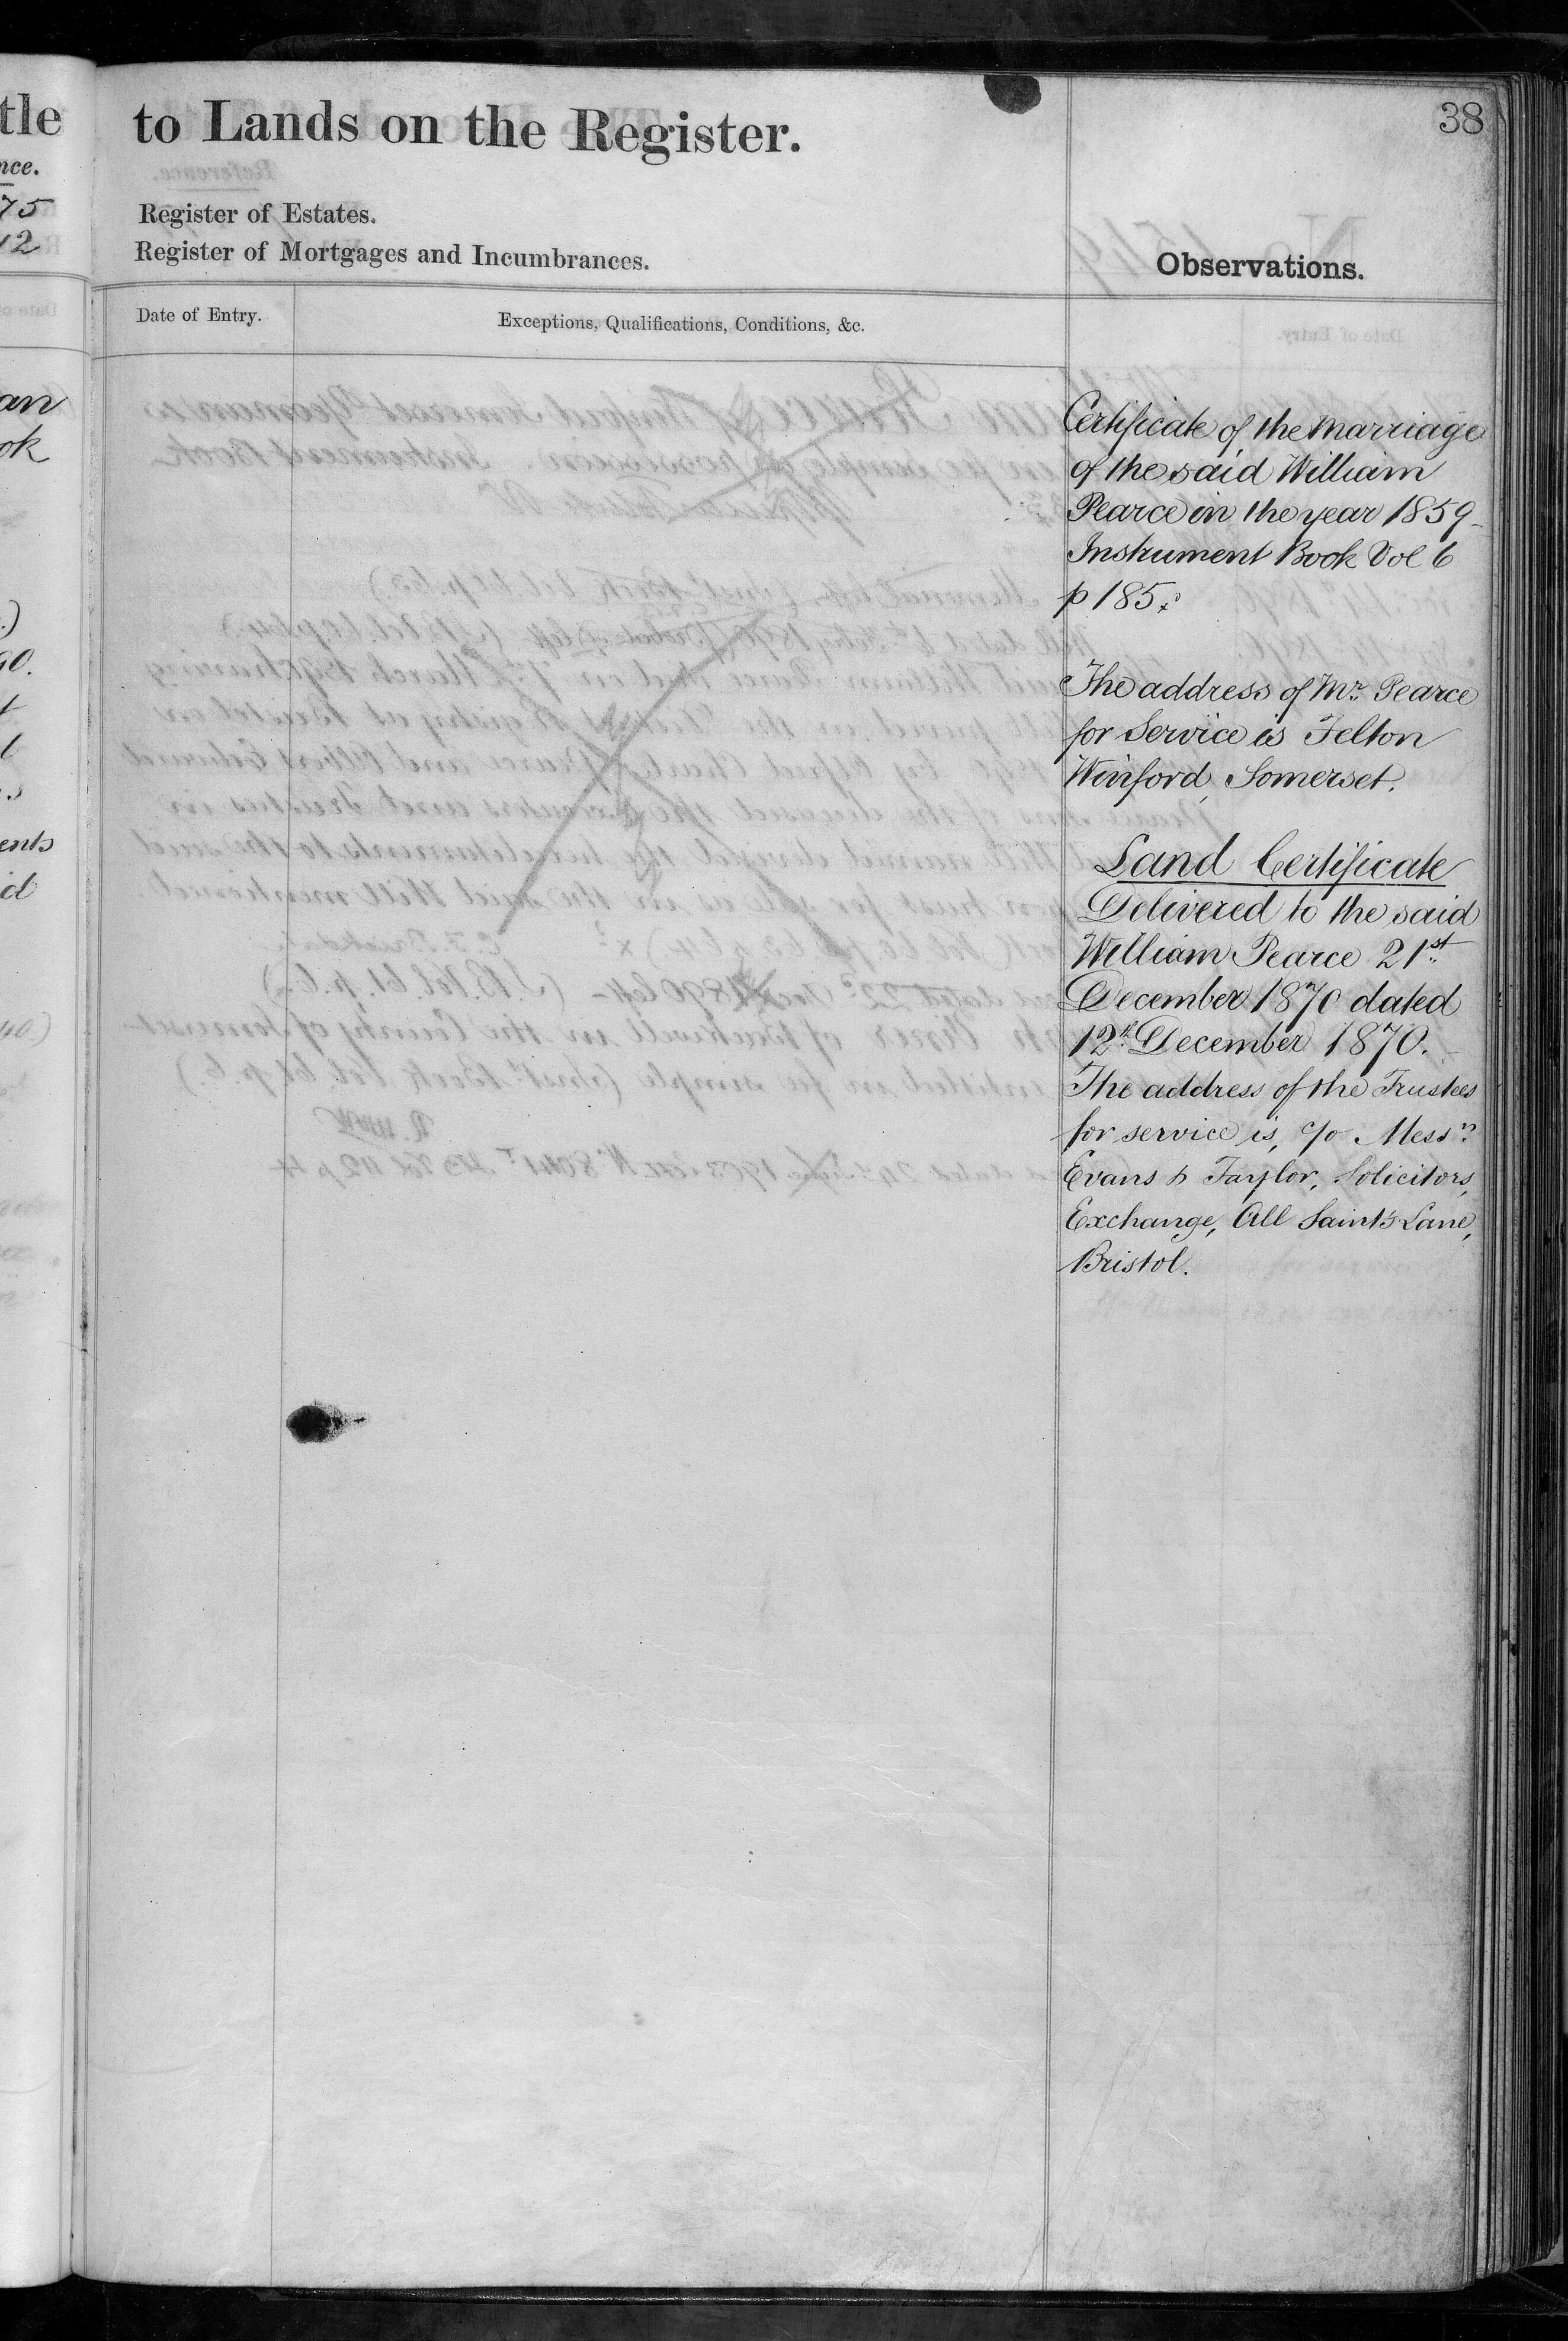 tle
nce.
75
12
an
ok
ents
id
to Lands on the Register.
38
Register of Estates.
Register of Mortgages and Incumbrances.
Observations.
Date of Entry.
Exceptions, Qualifications, Conditions, &c.
Certificate of the Marriage
of the said William
Pearce in the year 1859
Instrument Book Vol 6
p 185.
The address of Mr. Pearce
for Service is Felton
Winford, Somerset.
Land Certificate
Delivered to the said
William Pearce 21st
December 1870 dated
12th December 1870.
The address of the Trustees
for service is, c/o Messrs
Evans & Taylor, Solicitors,
Exchange, All Saint's Lane,
Bristol.